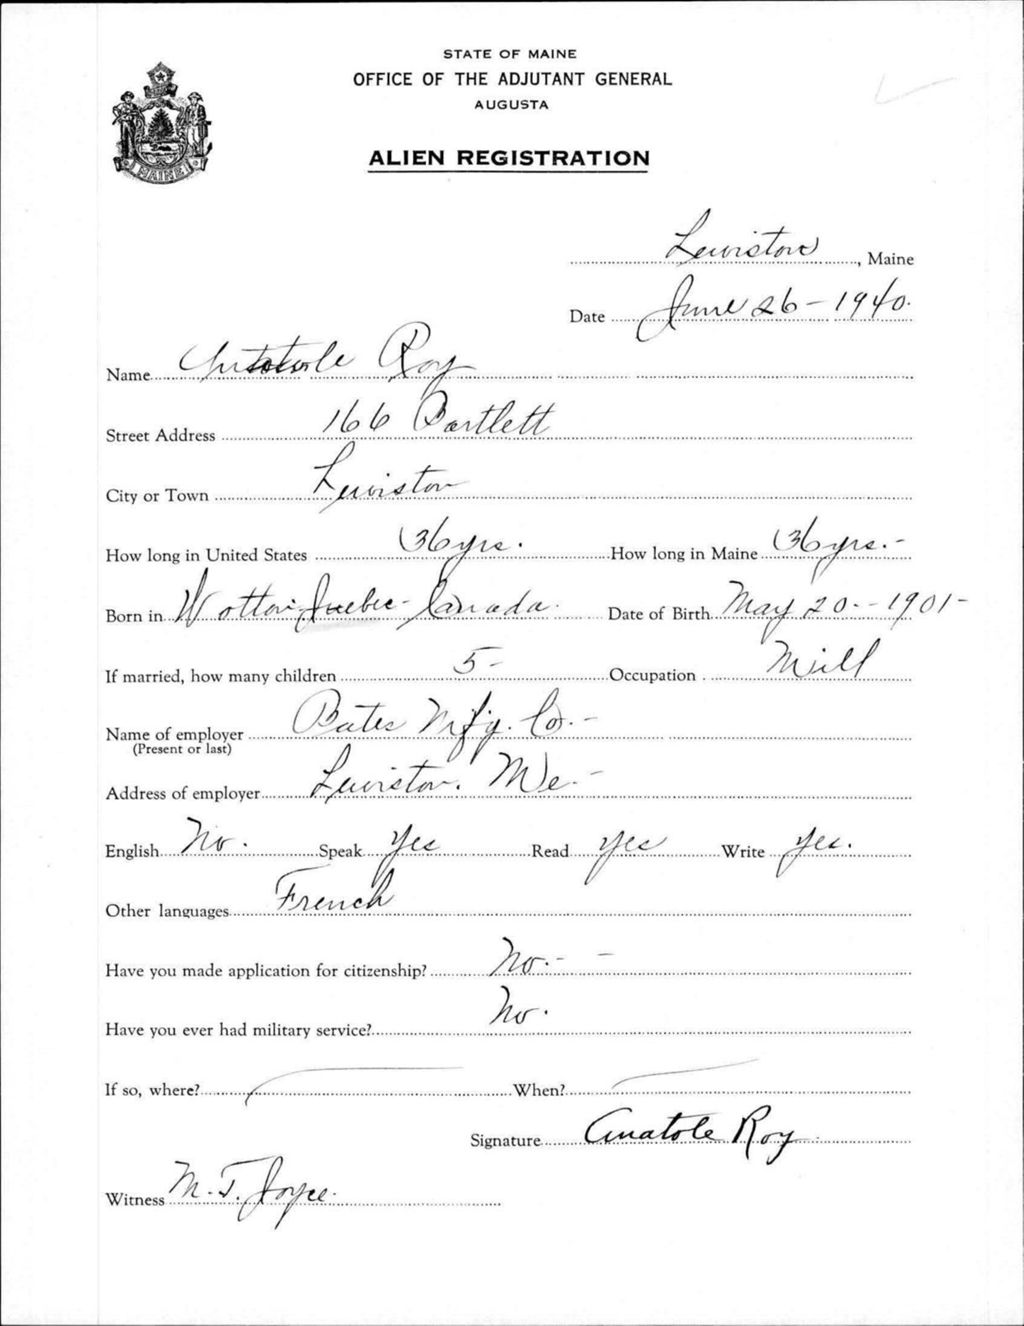 STATE OF MAINE
OFFICE OF THE ADJUTANT GENERAL
AUGUSTA
MAINE
ALIEN REGISTRATION
Lewiston, Maine
Date June 26 - 1940.
Name Roy
Street Address 166 Bartlett
City or Town Lewiston
How long in United States 36 yrs. How long in Maine 36 yrs. -
Born in Wotton Quebec - Canada. Date of Birth May 20. - 1901 -
If married, how many children 5 - Occupation Mill
Name of employer Bates Mfg. Co. -
(Present or last)
Address of employer Lewiston. Me -
English No. Speak Yes Read Yes Write Yes.
Other languages French
Have you made application for citizenship? No. - -
Have you ever had military service? No.
If so, where? When?
Signature Anatole Roy
Witness M. T. Joyce.